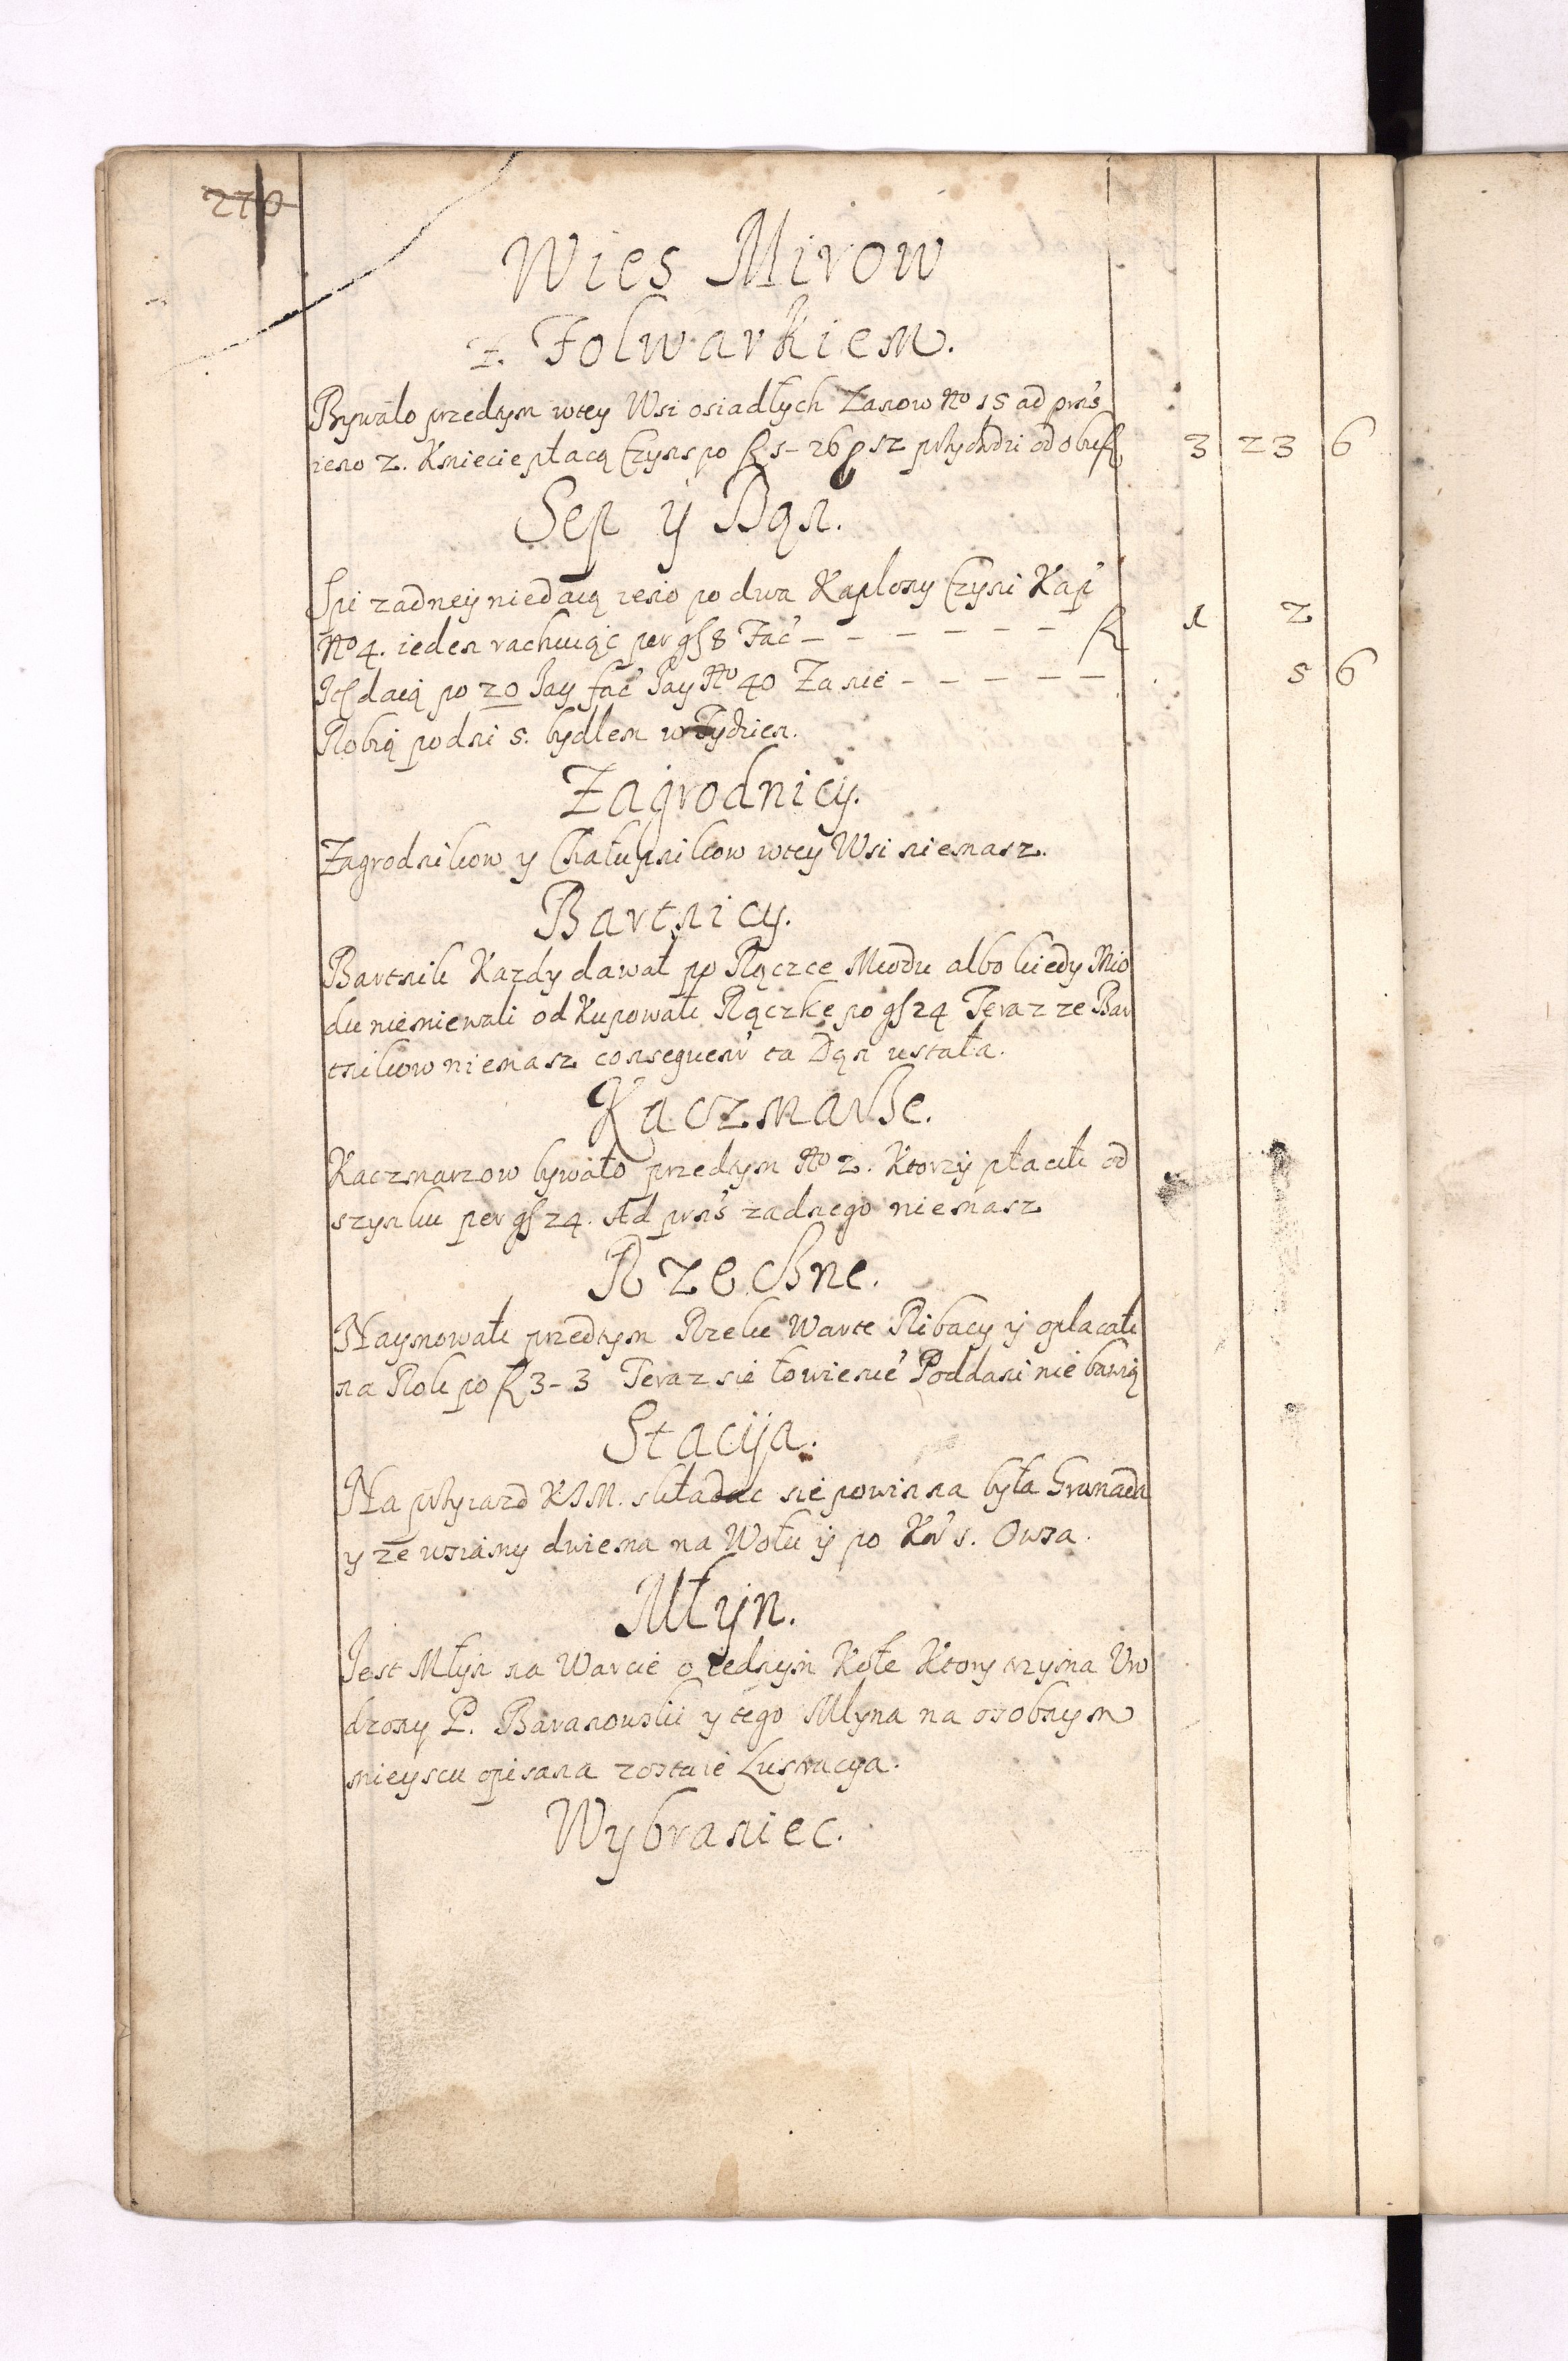 270
Wies Mirow
z. Folwarkiem.
Bywało przedtym wtey Wsi osiadłych Łanow No 15 ad prns
ieno 2. Kmiecie płacą Czynsu po f 1-26 psz przychodzi od obu f 3 23 6
Sep y Dan.
Spi zadney niedaią ieno po dwa Kapłony Czyni Kap
No 4. ieden rachuiąc per gs 8 Fac – – – – – – f 1 2
Jtf daią po 20 Jay fac Jay No 40 Za nie – – – – – 5 6
Robią podni 5. bydłem w Tydzien.
Zagrodnicy.
Zagrodnikow y Chałupnikow wtey Wsi niemasz.
Bartnicy.
Bartnik Kazdy dawał po Rączce Miodu albo kiedy Mio
du niemiewali od Kupowali Rączkę po gs 24 Teraz ze Bar
tnikow niemasz consequenr ta Dan ustała.
Kaczmarze.
Kaczmarzow bywało przedtym No 2. Ktorzy płacili od
szynku per gs 24. Ad prns zadnego niemasz
Rzeczne.
Naymowali przedtym Rzeke Warte Ribacy y opłacali
na Rok po f 3-3 Teraz sie łowienie Poddani nie bawią
Stacija.
Na przyiazd KJM. składac sie powinna była Gromada
y ze wsiamy dwiema na Wołu y po Kor 1. Owsa.
Młyn.
Jest Młyn na Warcie o iednym Kole Ktory trzyma Uro
dzony P. Baranowski y tego Młyna na osobnym
mieyscu opisana zostaie Lustracya.
Wybraniec.